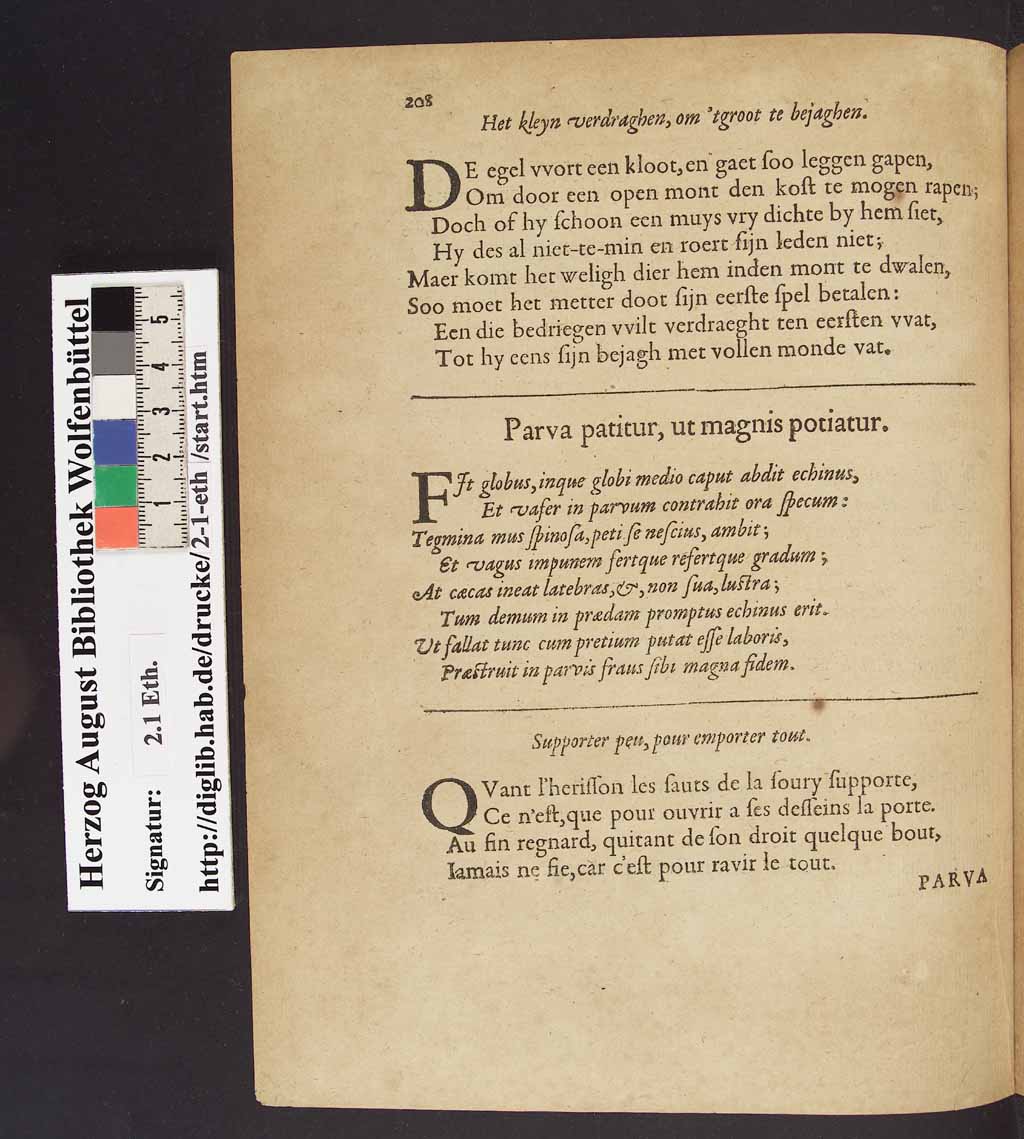 208
Het kleyn verdraghen, om 'tgroot te bejaghen.
DE egel vvort een kloot, en gaet ſoo leggen gapen,
Om door een open mont den koſt te mogen rapen;
Doch of hy ſchoon een muys vry dichte by hem ſiet,
Hy des al niet-te-min en roert ſijn leden niet;
Maer komt het weligh dier hem inden mont te dwalen,
Soo moet het metter doot ſijn eerſte ſpel betalen:
Een die bedriegen vvilt verdraeght ten eerſten vvat,
Tot hy eens ſijn bejagh met vollen monde vat.
Parva patitur, ut magnis potiatur.
FIt globus, inque globi medio caput abdit echinus,
Et vafer in parvum contrahit ora ſpecum:
Tegmina mus ſpinoſa, peti ſe neſcius, ambit;
Et vagus impunem fertque refertque gradum;
At cæcas ineat latebras, &, non ſua, luſtra;
Tum demum in prædam promptus echinus erit.
Ut fallat tunc cum pretium putat eſſe laboris,
Præſtruit in parvis fraus ſibi magna fidem.
Supporter peu, pour emporter tout.
QVant l'heriſſon les ſauts de la ſoury ſupporte,
Ce n'eſt, que pour ouvrir a ſes deſſeins la porte.
Au fin regnard, quitant de ſon droit quelque bout,
Iamais ne fie, car c'eſt pour ravir le tout.
PARVA
Herzog August Bibliothek Wolfenbüttel
Signatur: 2.1 Eth.
http://diglib.hab.de/drucke/2-1-eth /start.htm
1 2 3 4 5